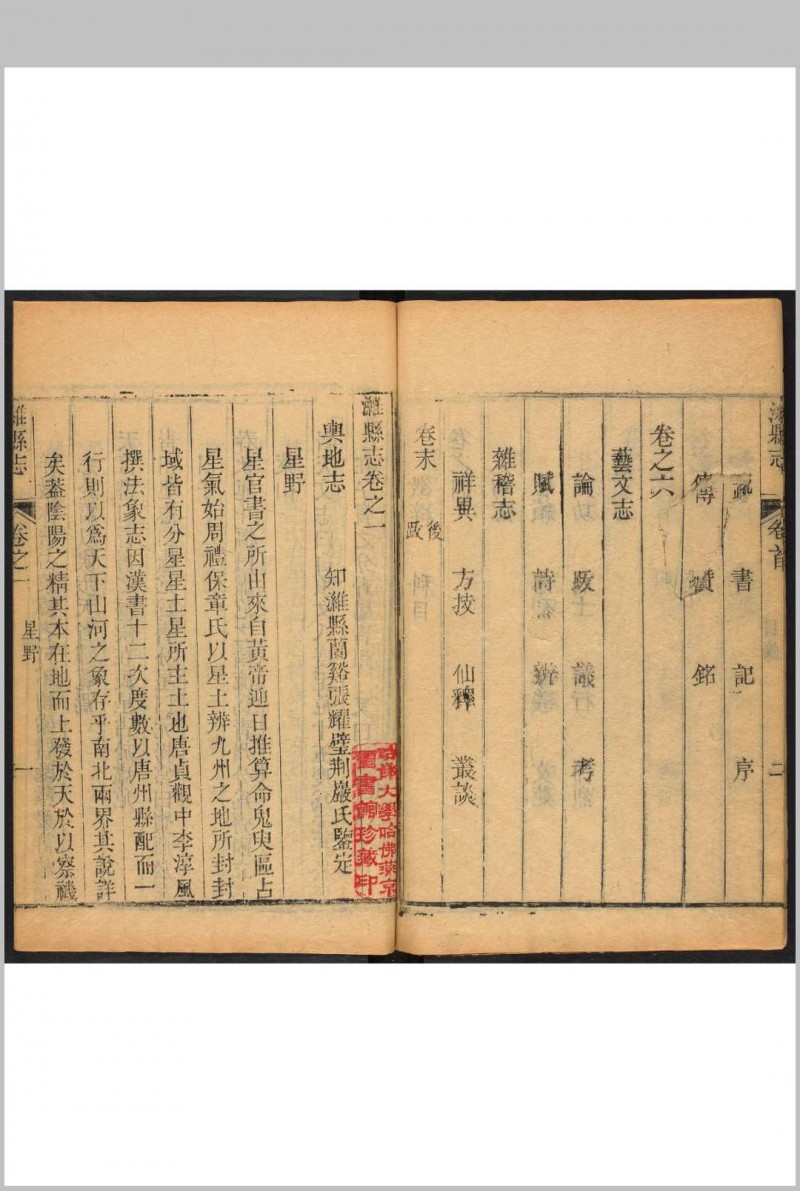 濰縣志
卷首
二
疏 書 記 序
傳 贊 銘
卷之六
藝文志
論 跋 議 考
賦 詩 辨
雜稽志
祥異 方技 仙釋 叢談
卷末
後跋
濰縣志卷之一
輿地志
知濰縣蘭谿張耀璧荆巖氏鑒定
星野
星官書之所由來自黃帝迎日推算命鬼臾區占
星氣始周禮保章氏以星土辨九州之地所封封
域皆有分星星土星所主土也唐貞觀中李淳風
撰法象志因漢書十二次度數以唐州縣配而一
行則以爲天下山河之象存乎南北兩界其說詳
矣蓋陰陽之精其本在地而上發於天於以察禨
濰縣志
卷之一
星野
一
哈佛大學哈佛燕京
圖書館珍藏印